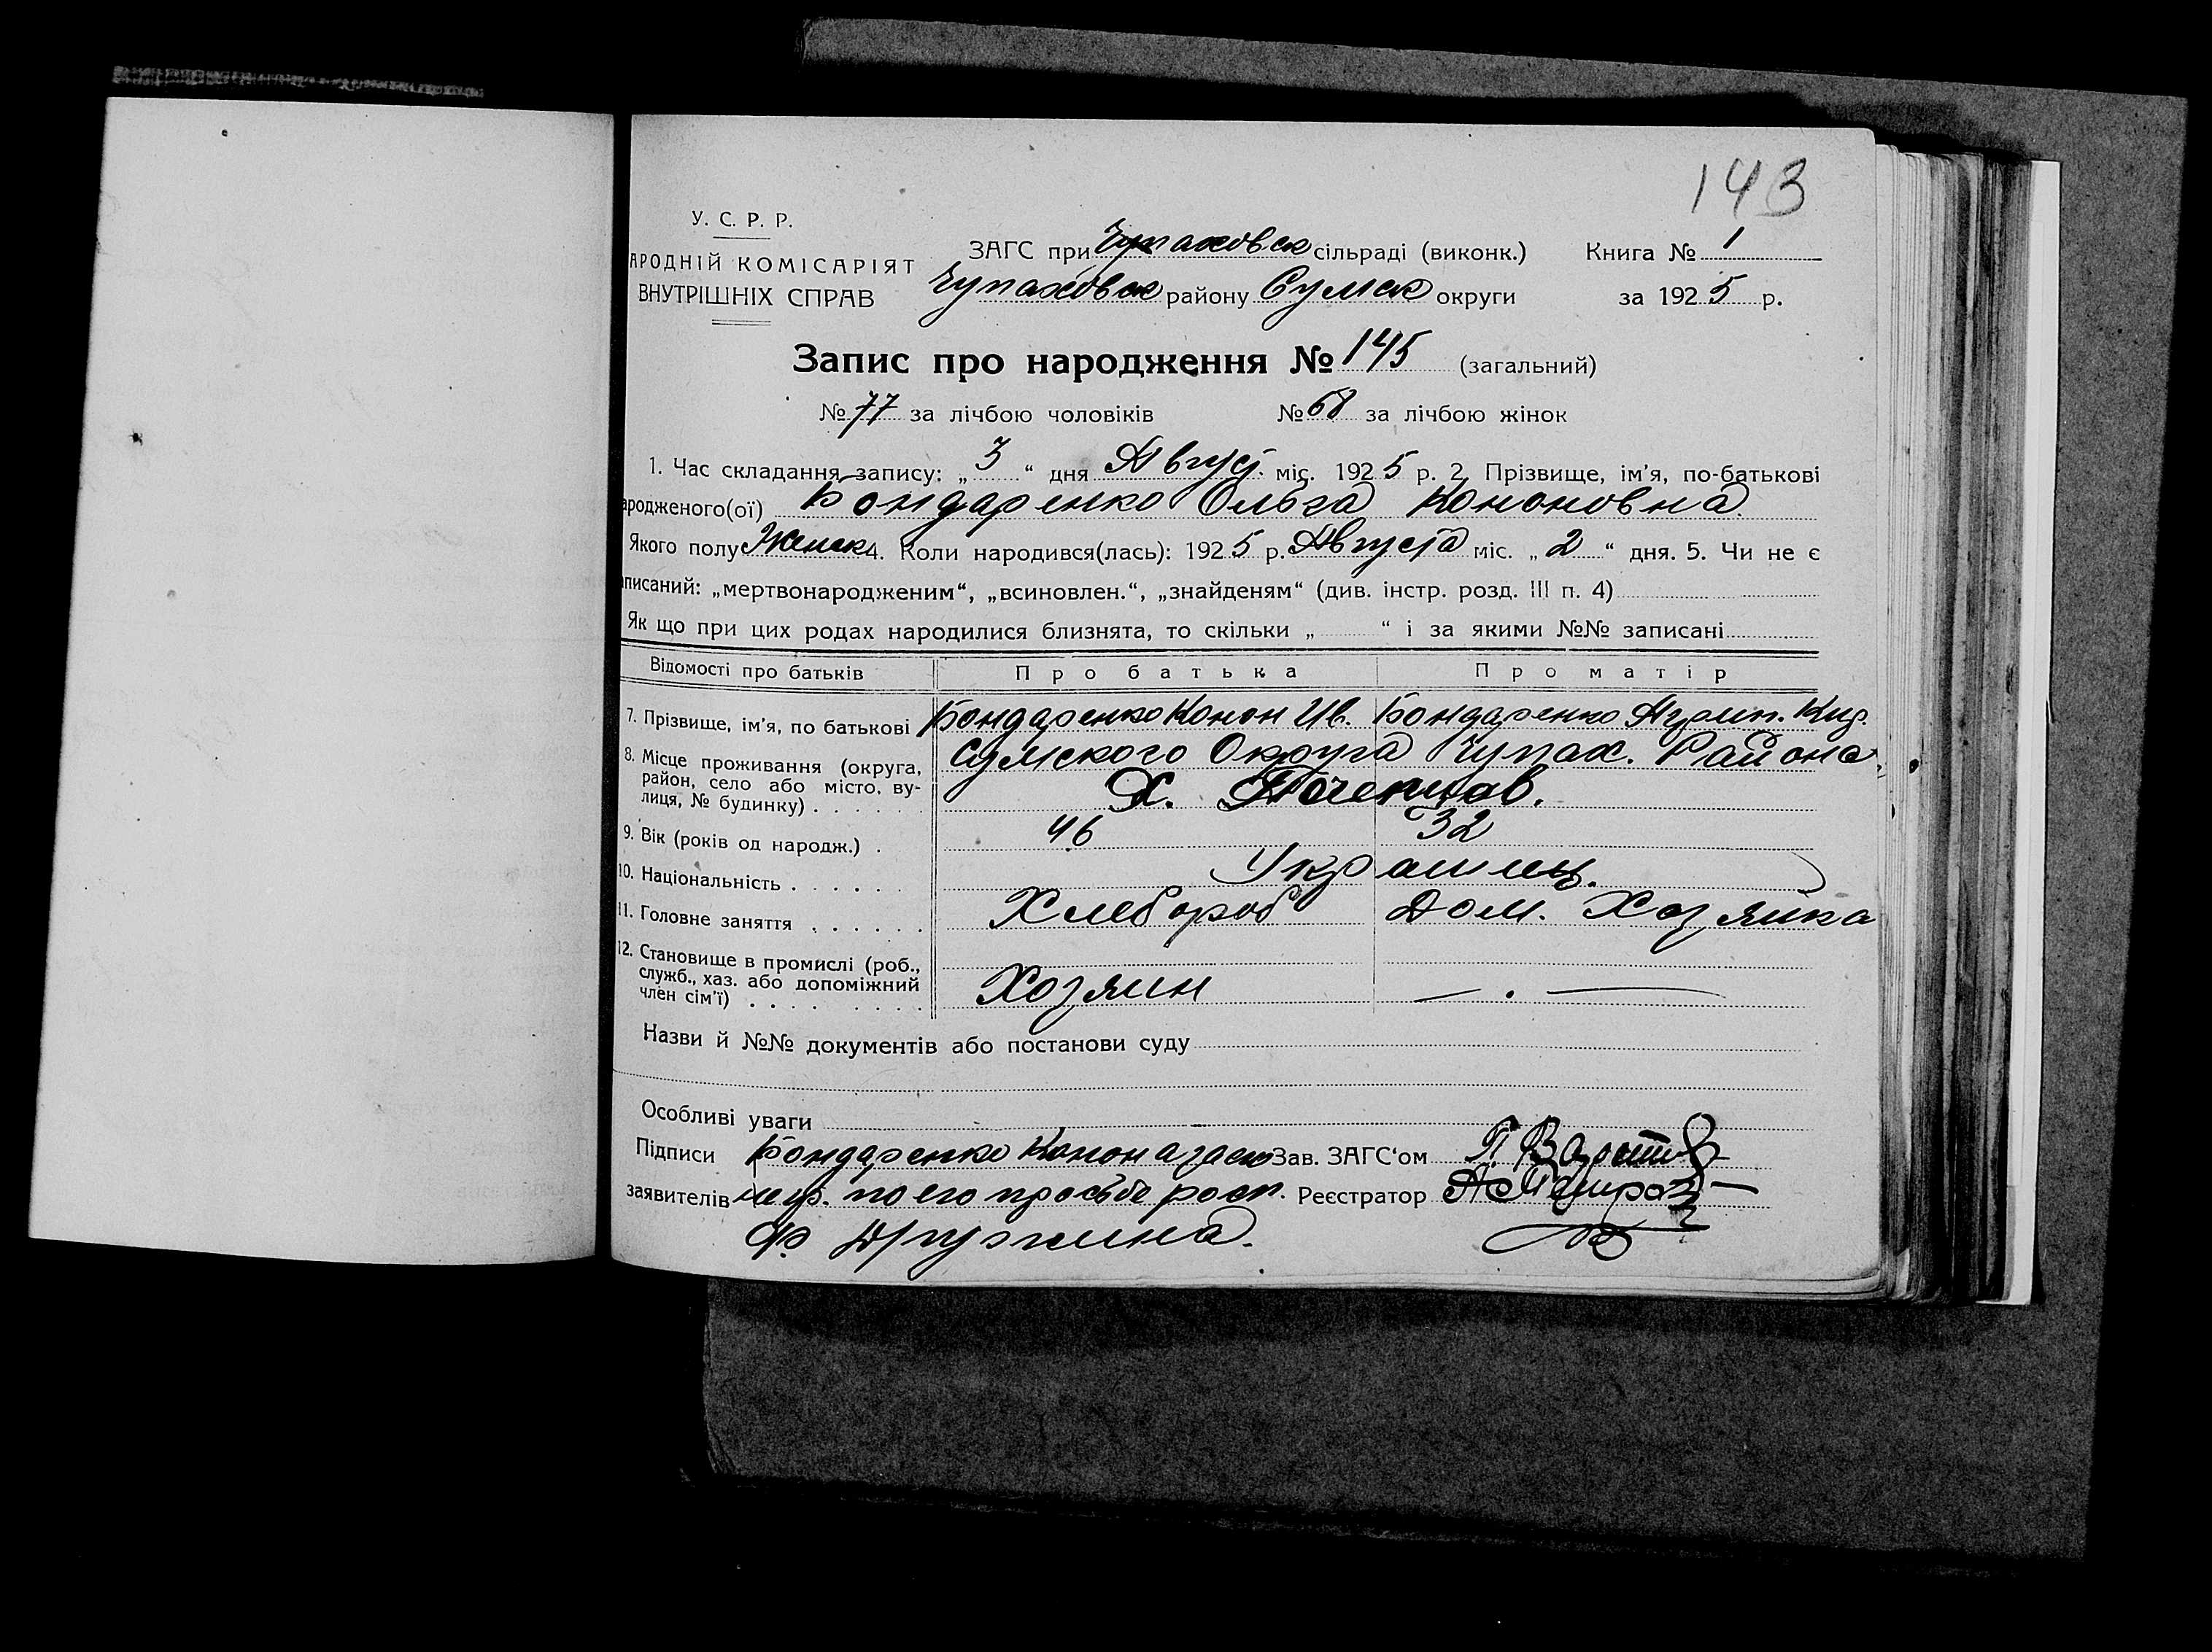 143
У. С. Р. Р.
АРОДНІЙ КОМІСАРІЯТ
ВНУТРІШНІХ СПРАВ
ЗАГС при Чупаховск сільраді (виконк.) Книга № 1
Чупаховск району Сумск округи за 1925 р.
Запис про народження № 145 (загальний)
№ 77 за лічбою чоловіків № 68 за лічбою жінок
1. Час складання запису: „3“ дня Август. міс. 1925 р. 2. Прізвище, ім'я, по-батькові
ародженого(ої) Бондаренко Ольга Кононовна
Якого полу Женск 4. Коли народився(лась): 1925 р. Августа міс. „2“ дня. 5. Чи не є
аписаний: „мертвонародженим“, „всиновлен.“, „знайденям“ (див. інстр. розд. III п. 4)
Як що при цих родах народилися близнята, то скільки „ “ і за якими №№ записані
Відомості про батьків Про батька Про матір
7. Прізвище, ім'я, по батькові Бондаренко Конон Ив. Бондаренко Агрип. Кир.
8. Місце проживання (округа, Сумского Округа Чупах. Района
район, село або місто, ву-
лиця, № будинку) Х.
9. Вік (років од народж.) 46 32
10. Національність Украинец.
11. Головне заняття Хлебороб Дом. Хозяйка
12. Становище в промислі (роб.,
служб., хаз. або допоміжний
член сім'ї) Хозяин —.—
Назви й №№ документів або постанови суду
Особливі уваги
Підписи Бондаренко Конон а за Зав. ЗАГС'ом
заявителів негр. по его просьбе росп. Реєстратор
Ф